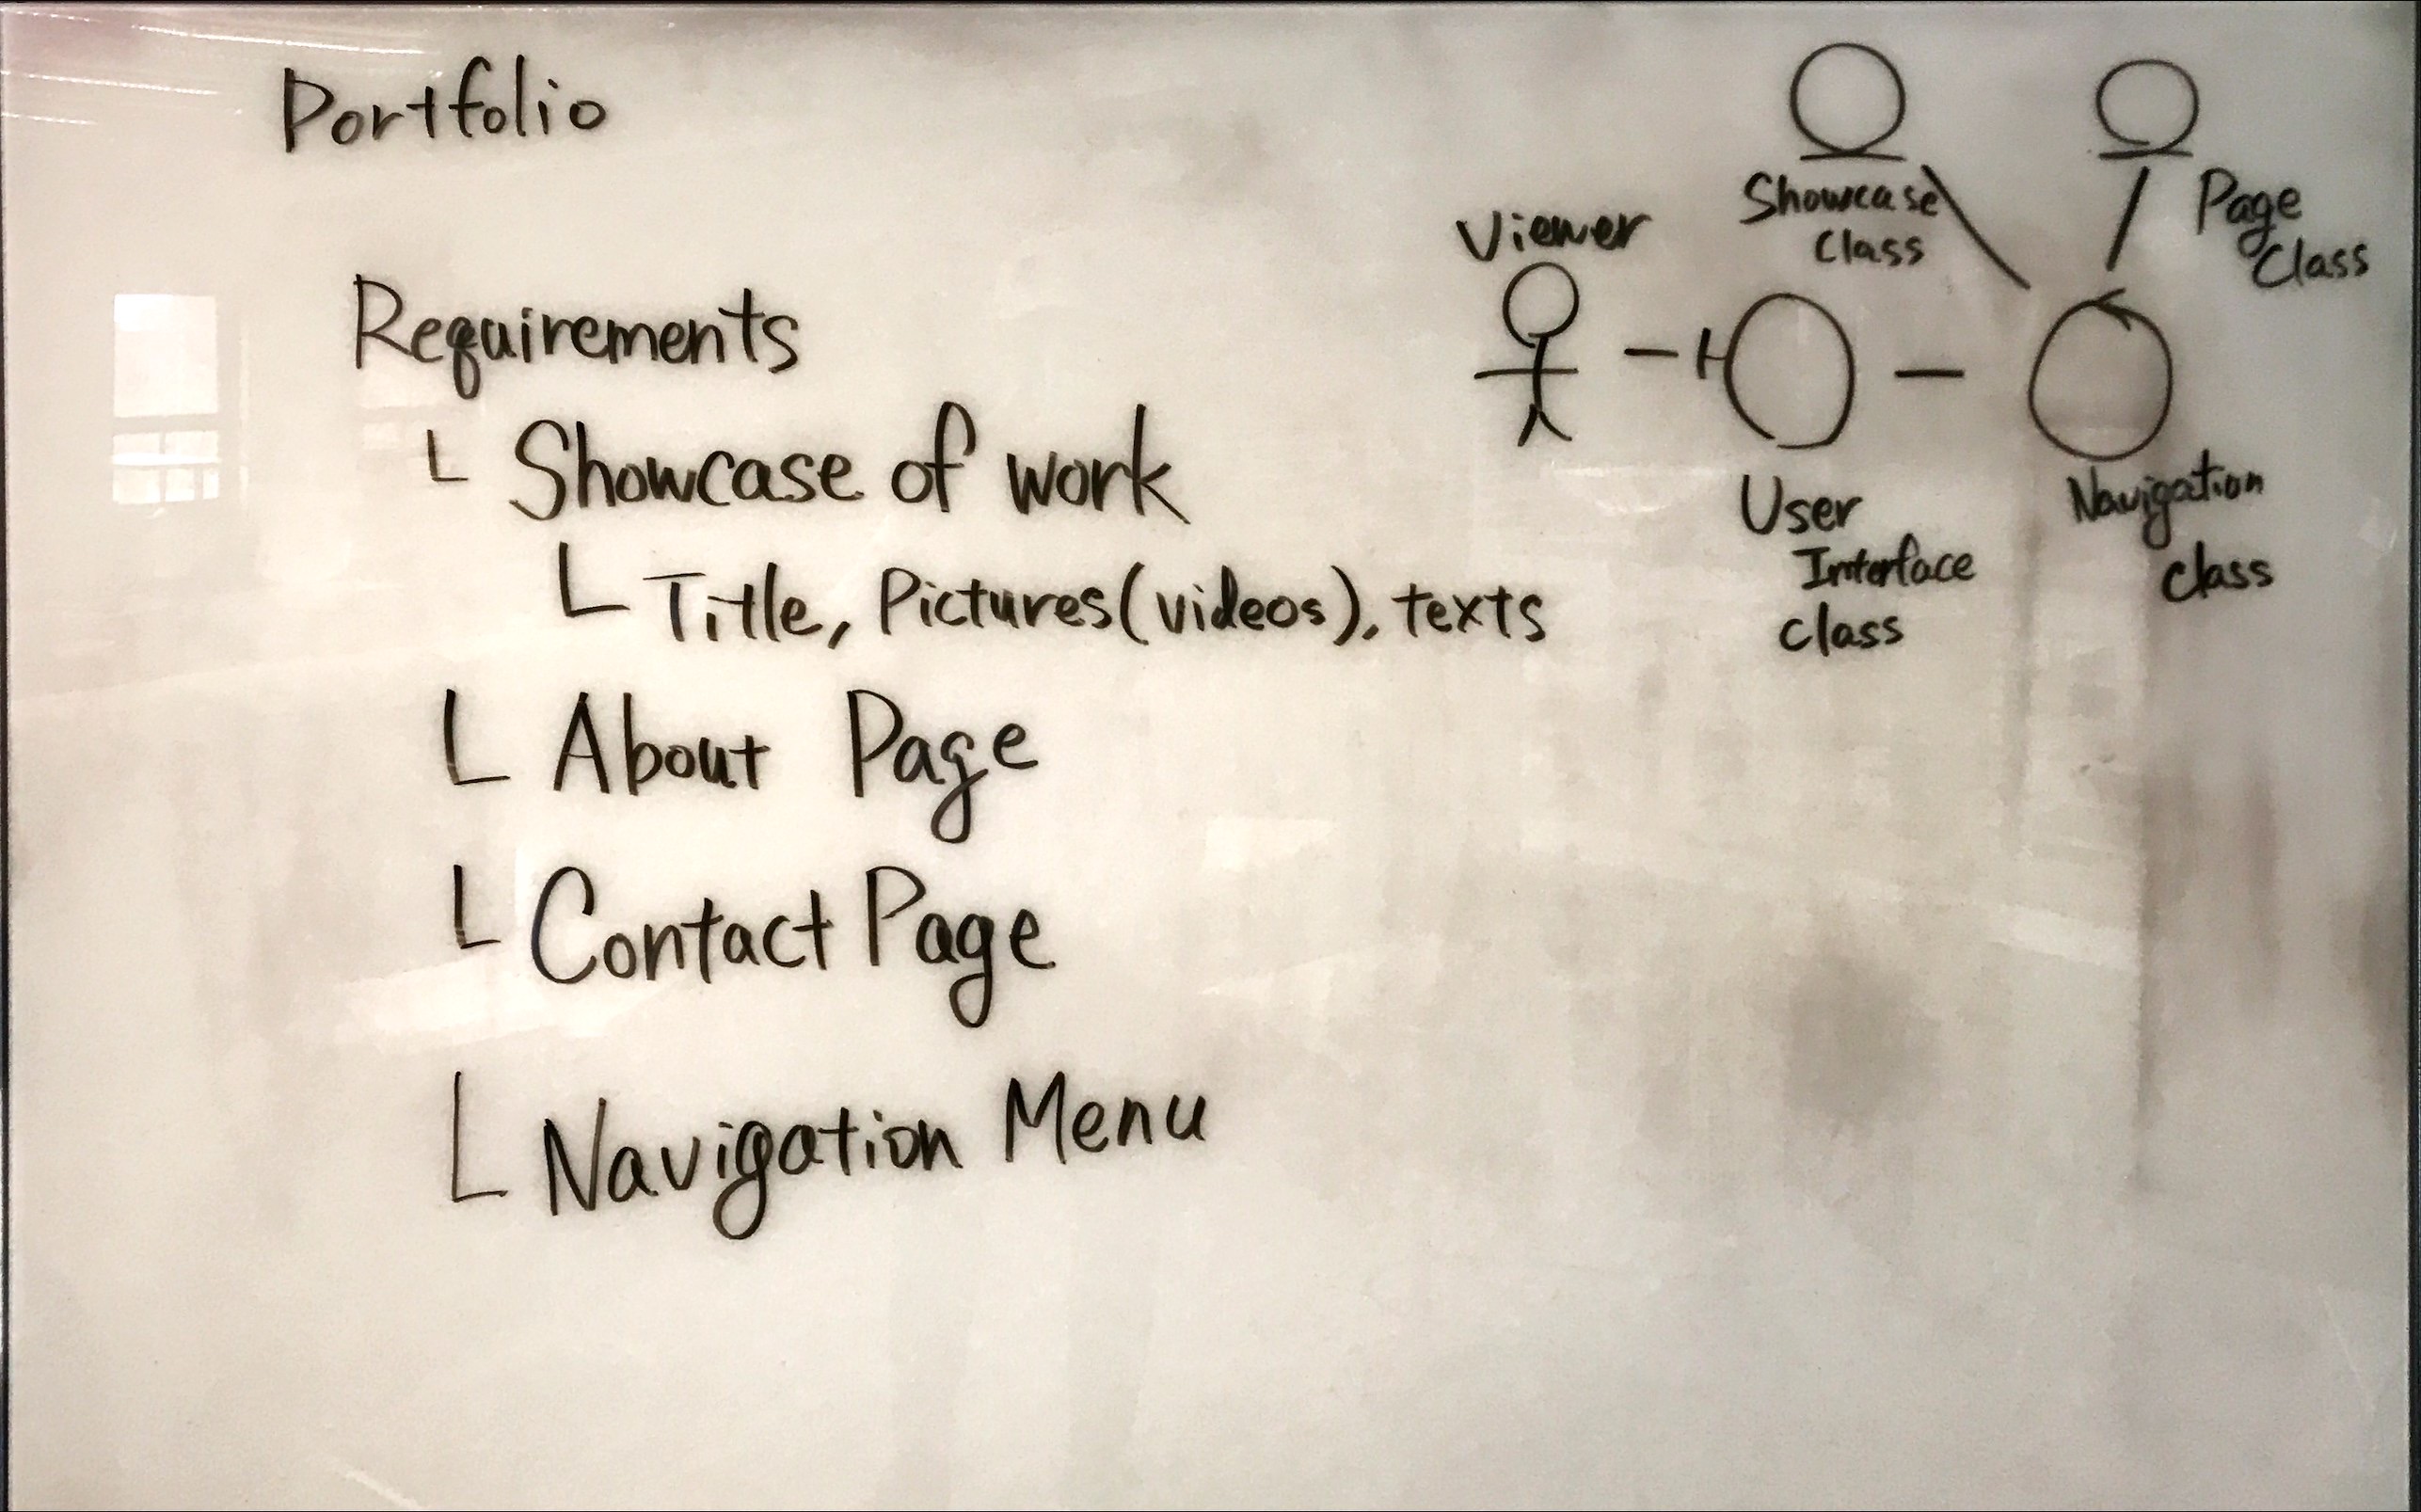 Portfolio
Requirements
Showcase of work
Title, Pictures(videos), texts
About Page
Contact Page
Navigation Menu
Viewer
Showcase
Class
Page
Class
User
Interface
class
Navigation
class